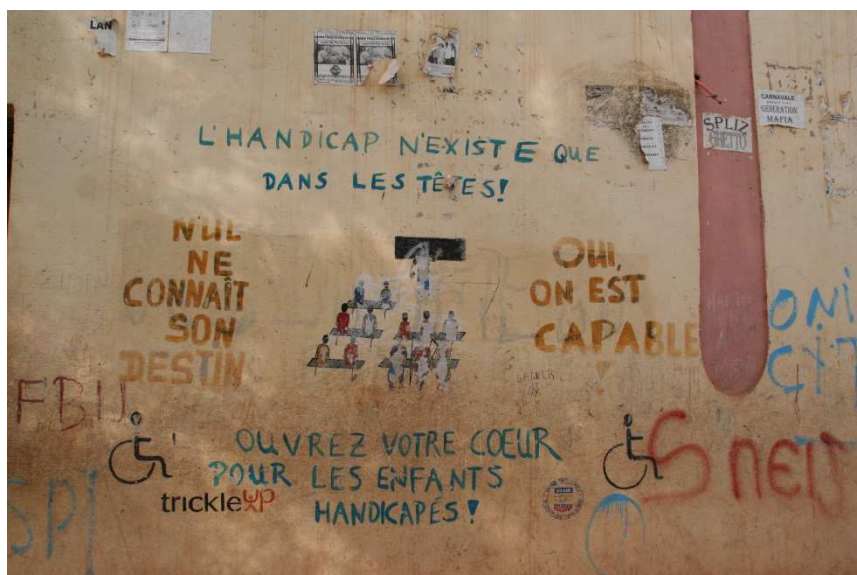 LAN
CARNAVALE
GENERATION
MAFIA
SPLIZ
GHETTO
L'HANDICAP N'EXISTE QUE
DANS LES TÊTES!
NUL
NE
CONNAÎT
SON
DESTIN
OUI,
ON EST
CAPABLE
ONI
FBIJ
OUVREZ VOTRE COEUR
POUR LES ENFANTS
HANDICAPÉS!
trickle up
SPI